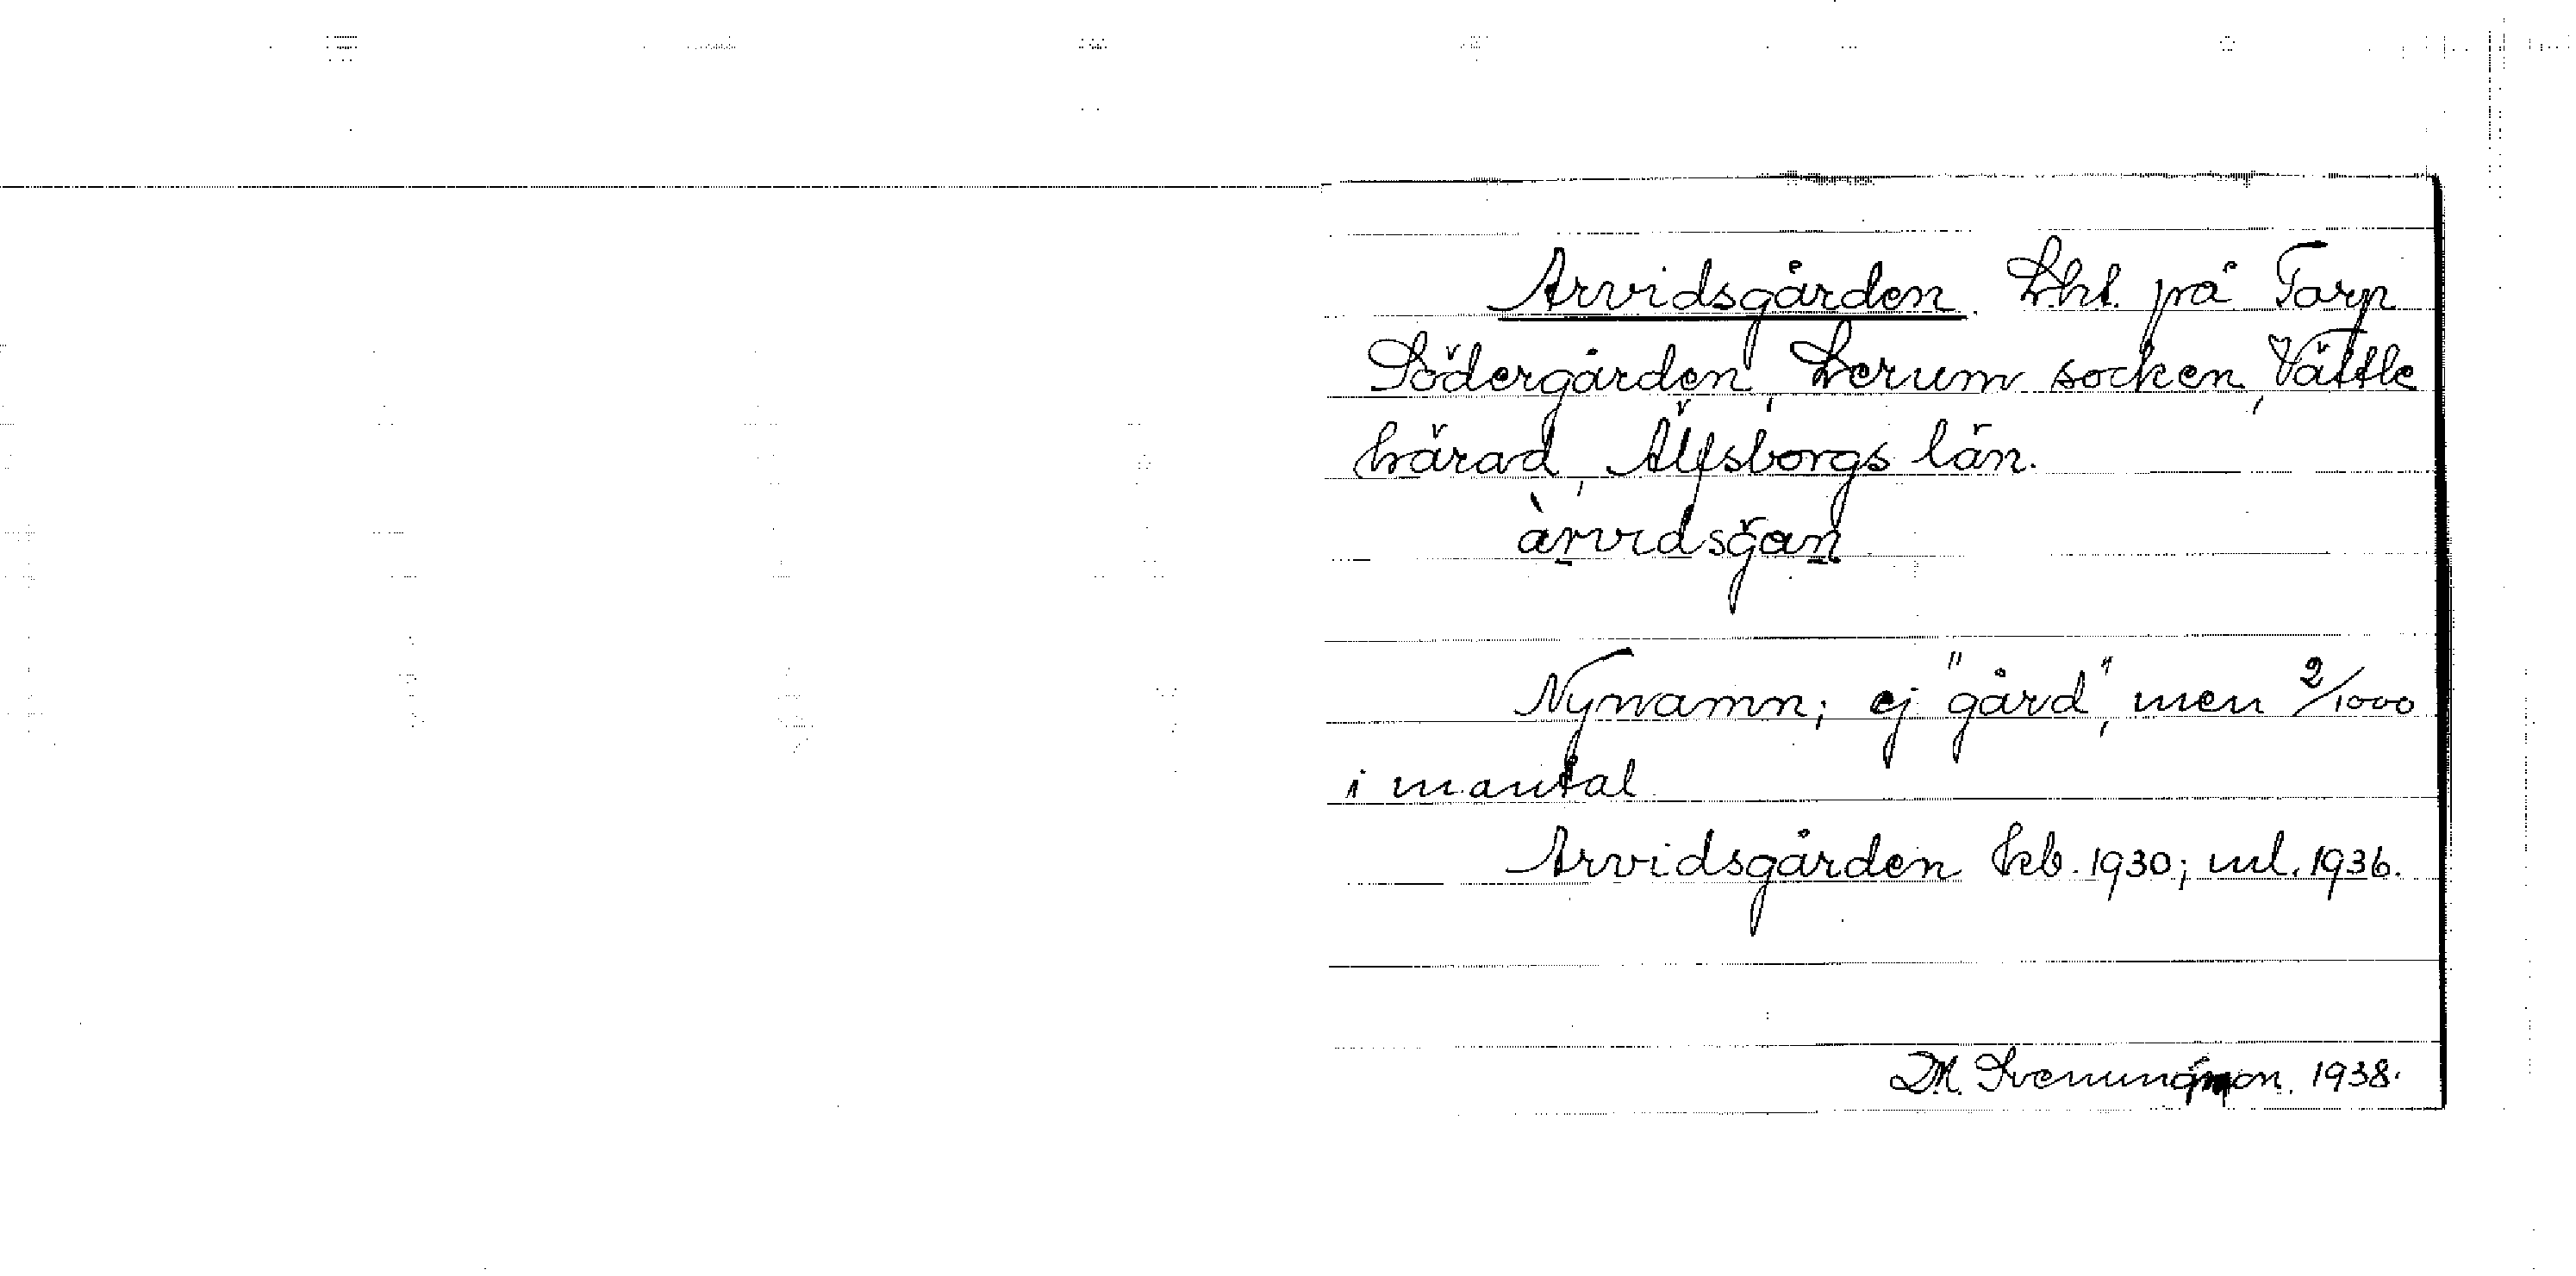 Arvidsgården. Lht. på Torp
Södergården, Lerum socken, Vättle
härad, Älfsborgs län.
àrvidsgan
Nynamn; ej "gård", men 2/1000
i mantal
Arvidsgården kb. 1930; ml. 1936.
D.M. Svenungsson. 1938.